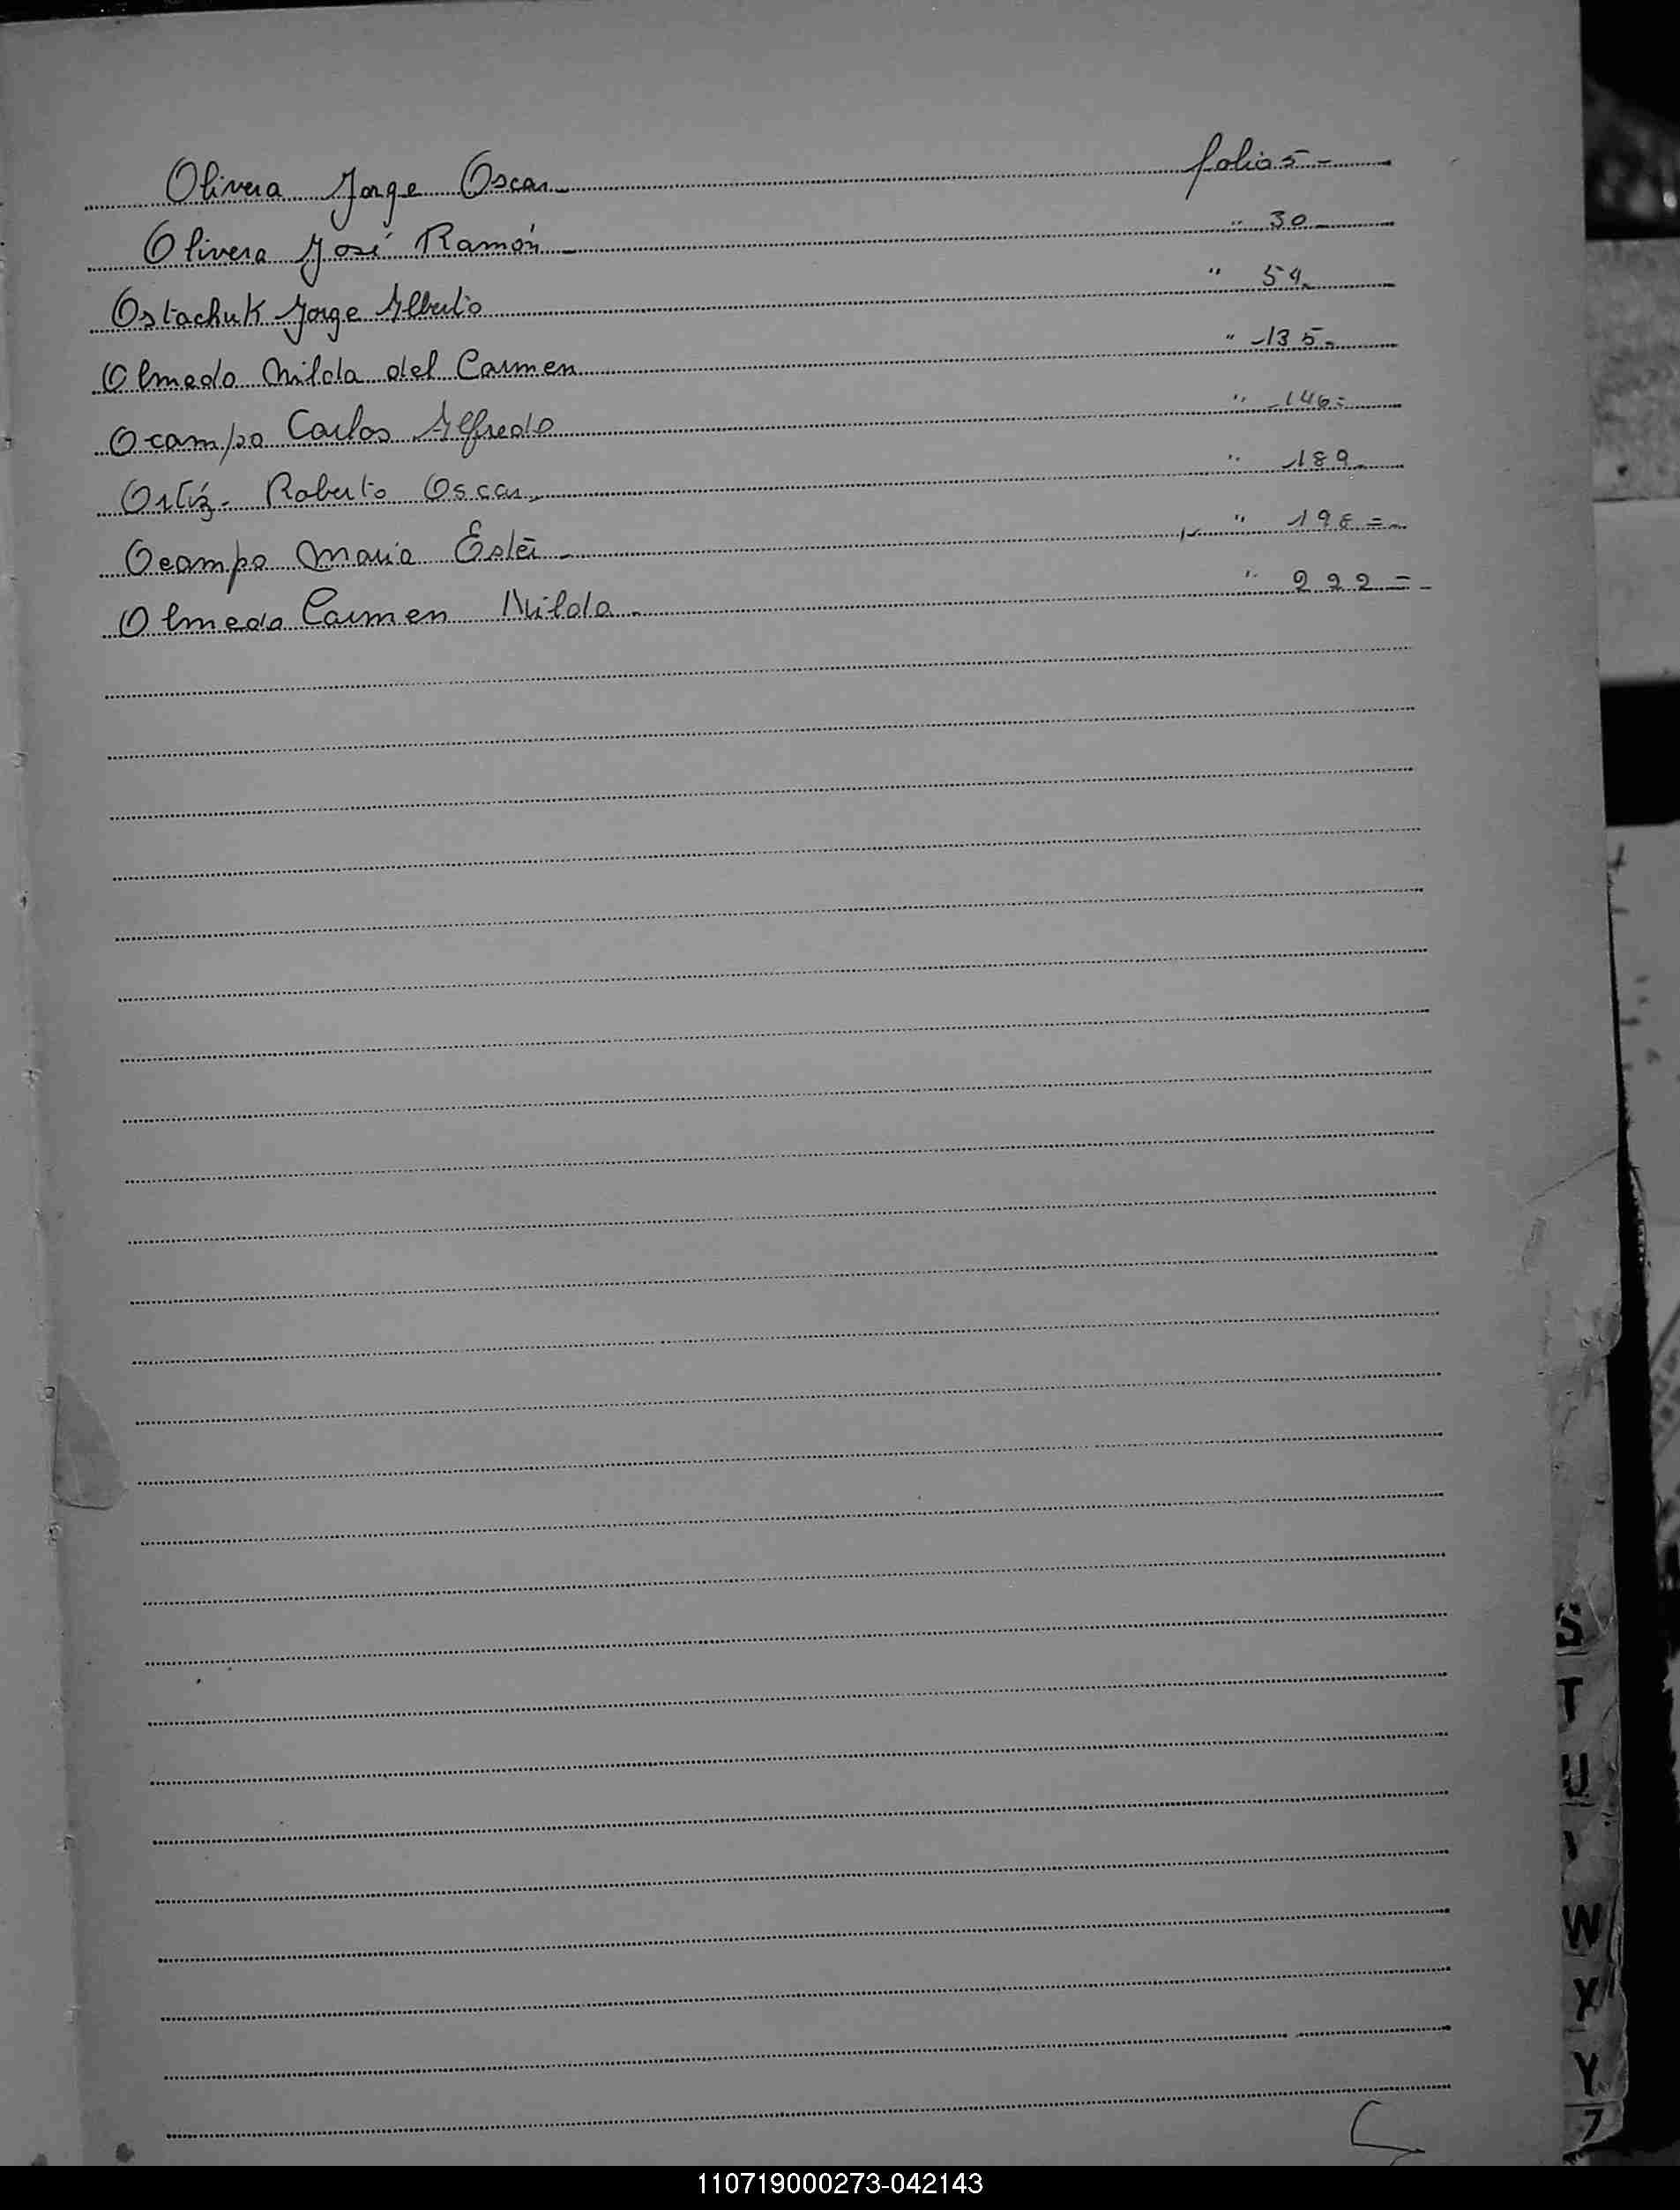 Olivera Jorge Oscar folio 5-
Olivera José Ramón " 30
Ostachuk Jorge Alberto " 54
Olmedo Nilda del Carmen " 135
Ocampo Carlos Alfredo " 146=
Ortíz Roberto Oscar " 189
Ocampo Maria Ester " 198=
Olmedo Carmen Nilda " 222=
S
T
U
W
X
Y
Z
110719000273-042143